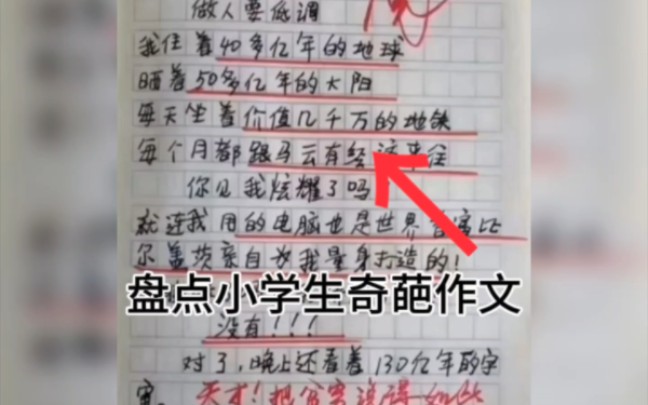 做人要低调
我住着40多亿年的地球
晒着50多亿年的太阳
每天坐着价值几千万的地铁
每个月都跟马云有经济来往
你见我炫耀了吗
就连我用的电脑也是世界首富比
尔盖茨亲自为我量身打造的!
盘点小学生奇葩作文
没有!!!
对了,晚上还看着130亿年的宇
宙。天才!把穷写得如此